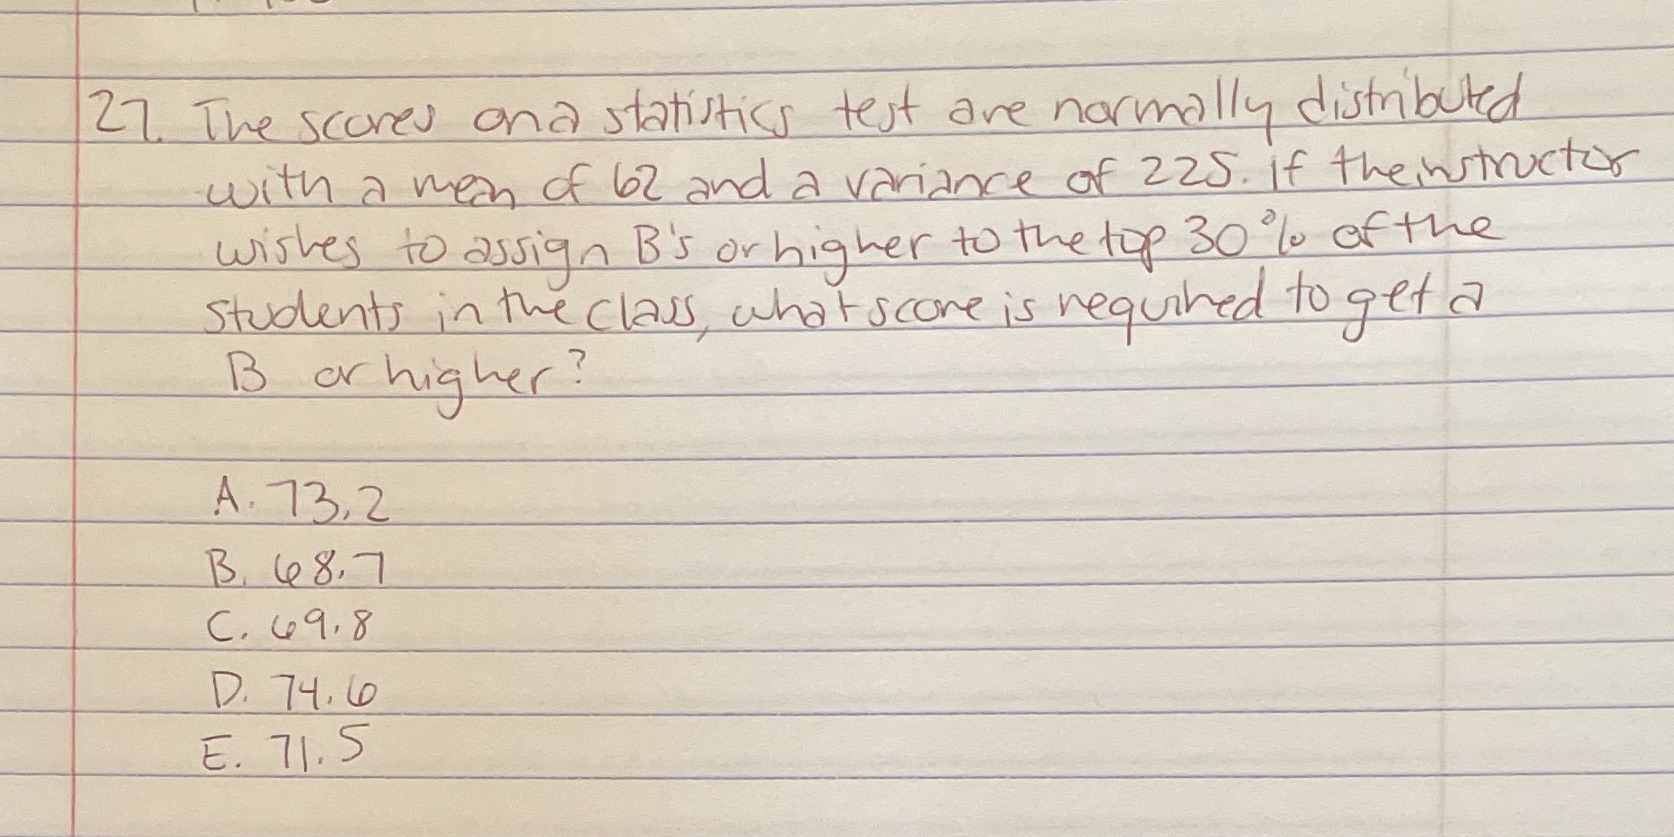 27. The scores on a statistics test are normally distributed
with a mean of 62 and a variance of 225. If the instructor
wishes to assign B's or higher to the top 30% of the
students in the class, what score is required to get a
B or higher?
A. 73.2
B. 68.7
C. 69.8
D. 74.6
E. 71.5